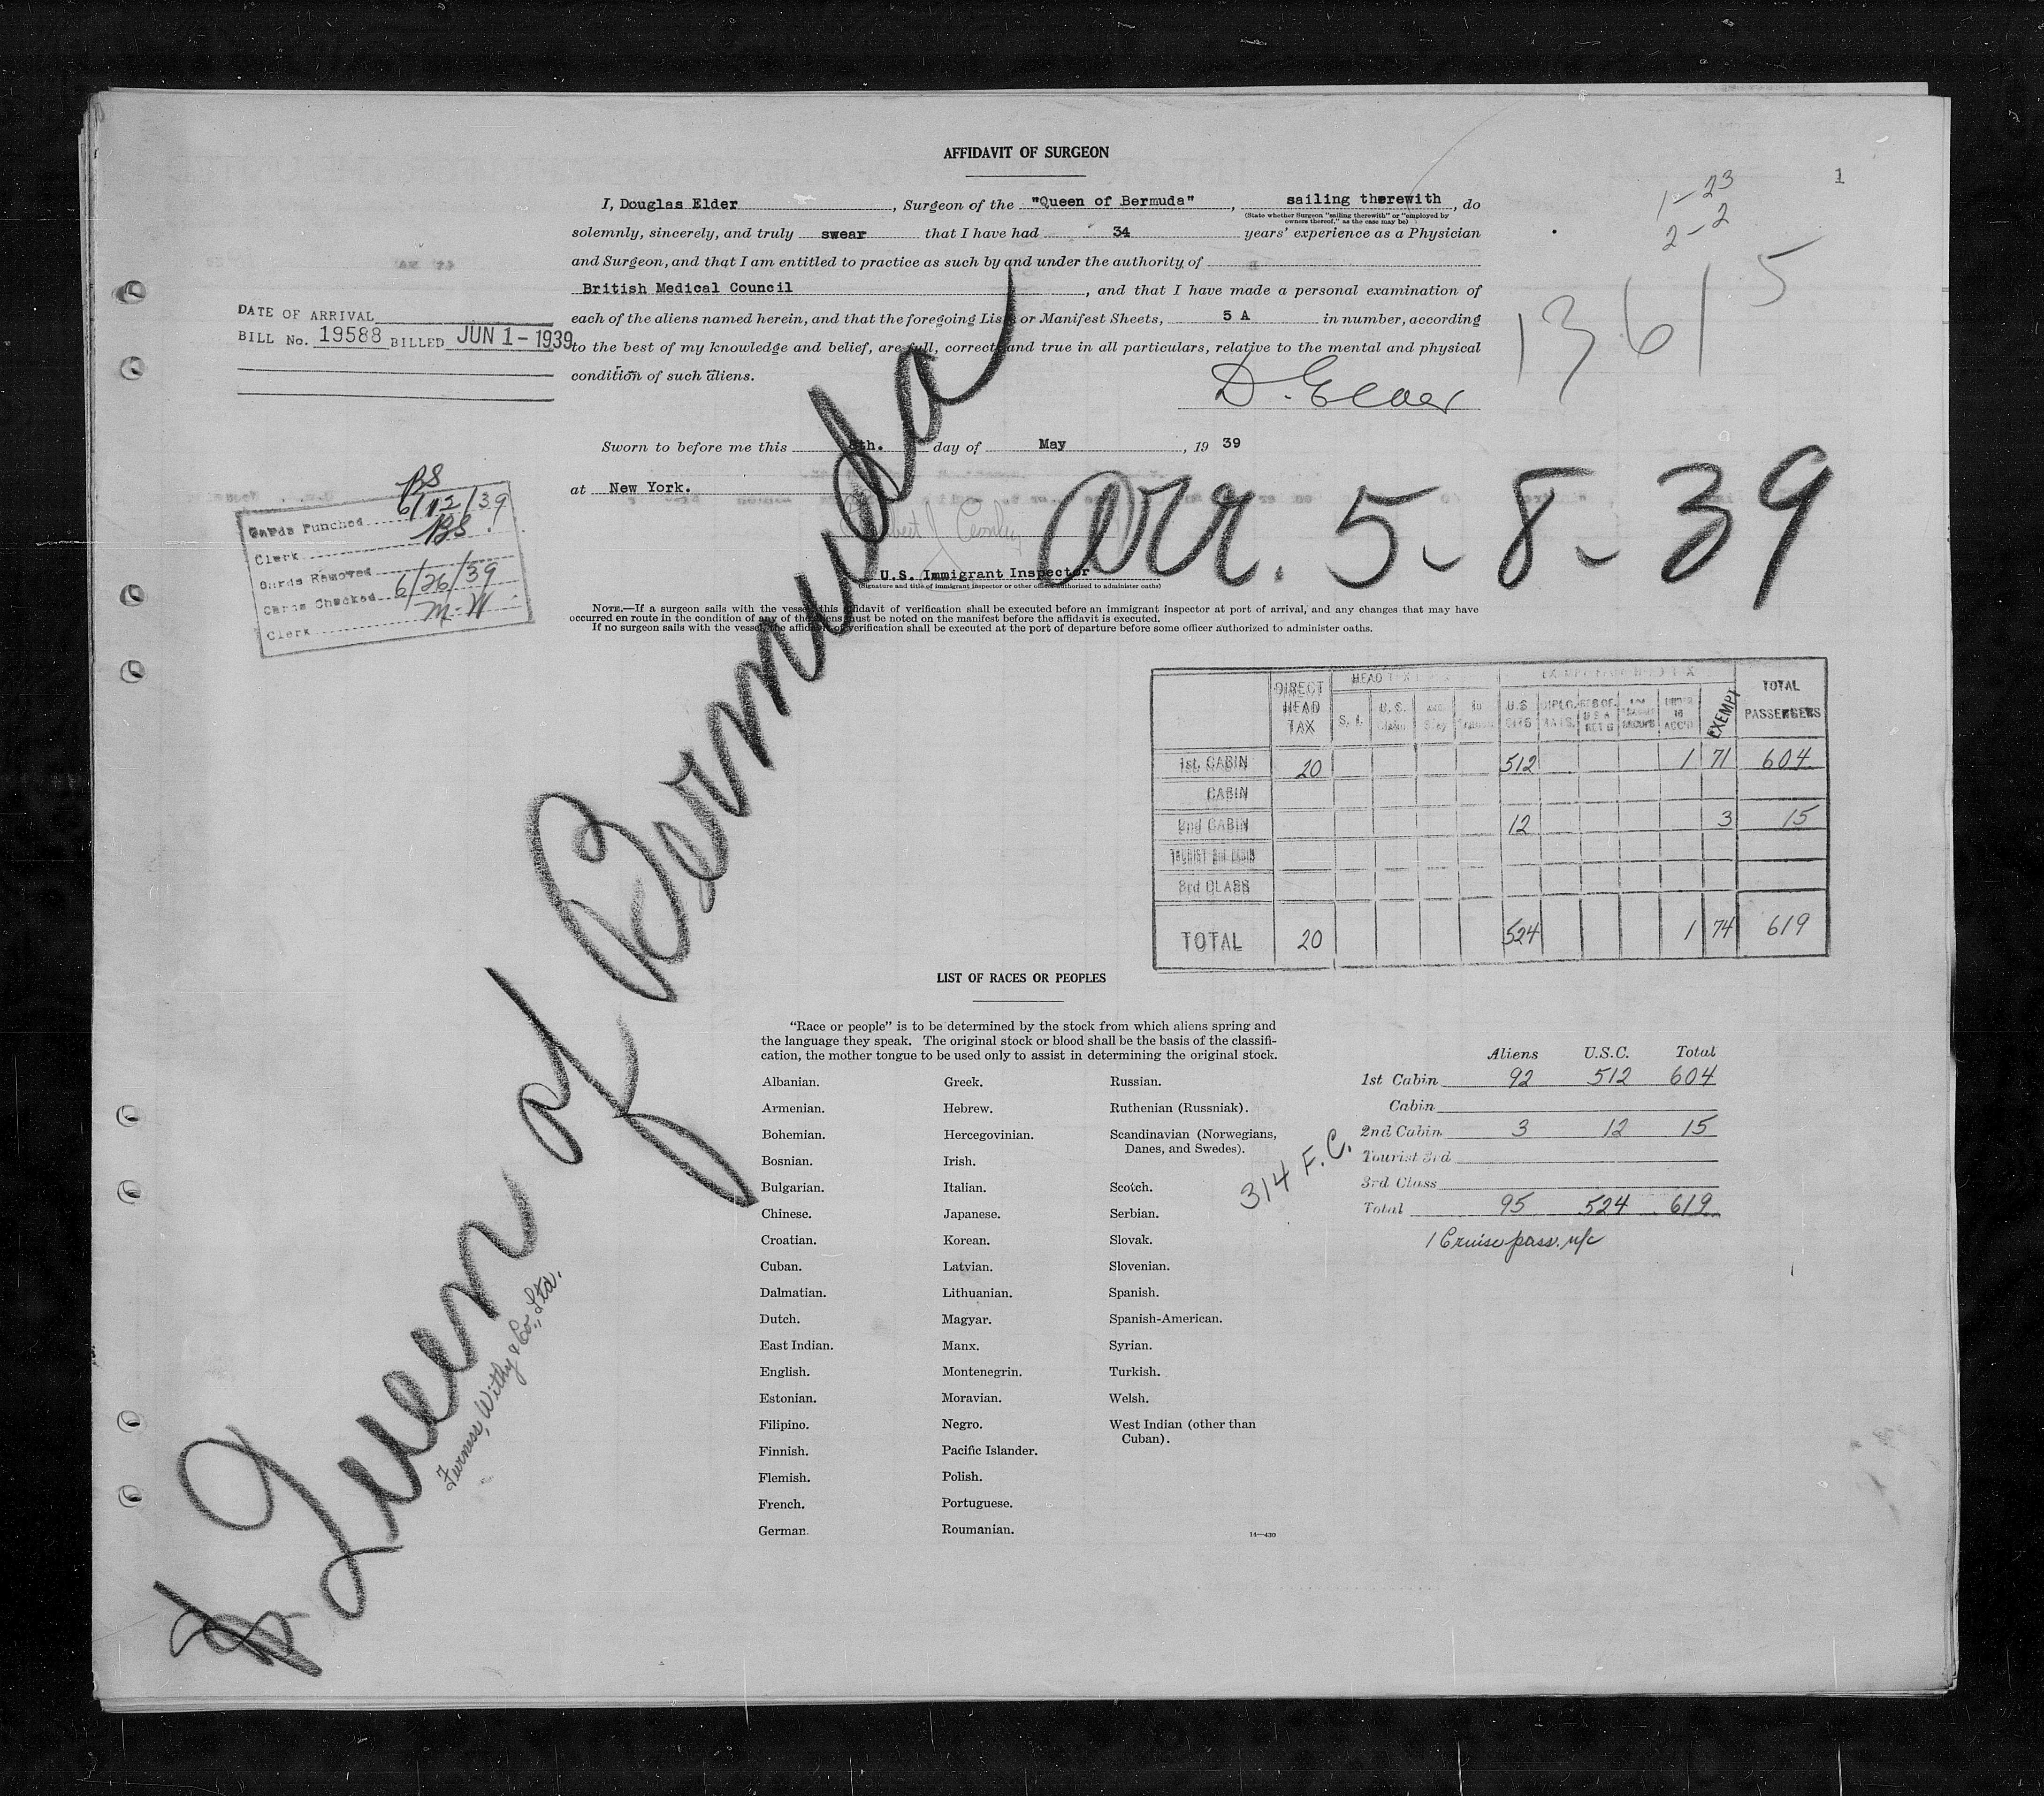 AFFIDAVIT OF SURGEON
1
1-23
2-2
I, Douglas Elder, Surgeon of the "Queen of Bermuda", sailing therewith, do
(State whether Surgeon "sailing therewith" or "employed by
owners thereof," as the case may be)
solemnly, sincerely, and truly swear that I have had 34 years' experience as a Physician
and Surgeon, and that I am entitled to practice as such by and under the authority of
British Medical Council, and that I have made a personal examination of
each of the aliens named herein, and that the foregoing Lists or Manifest Sheets, 5 A in number, according
to the best of my knowledge and belief, are full, correct, and true in all particulars, relative to the mental and physical
condition of such aliens.
13615
DATE OF ARRIVAL
BILL No. 19588 BILLED JUN 1-1939
D. Elder
Sworn to before me this 8th. day of May, 1939
at New York.
arr. 5-8-39
U.S. Immigrant Inspector
(Signature and title of immigrant inspector or other officer authorized to administer oaths)
BS
Cards Punched 6/12/39
Clerk BS.
Cards Removed
Cards Checked 6/26/39
Clerk M-W
NOTE.—If a surgeon sails with the vessel, this affidavit of verification shall be executed before an immigrant inspector at port of arrival, and any changes that may have
occurred en route in the condition of any of the aliens must be noted on the manifest before the affidavit is executed.
If no surgeon sails with the vessel, the affidavit of verification shall be executed at the port of departure before some officer authorized to administer oaths.
DIRECT HEAD TAX HEAD TAX S. I. U.S. U.S. CITS DIPLOMATS. EXEMPT TOTAL PASSENGERS
1st. CABIN 20 512 1 71 604
CABIN
2nd CABIN 12 3 15
TOURIST 3rd CABIN
3rd CLASS
TOTAL 20 524 1 74 619
S/S Queen of Bermuda
Furness, Withy & Co., Ltd.
LIST OF RACES OR PEOPLES
"Race or people" is to be determined by the stock from which aliens spring and
the language they speak. The original stock or blood shall be the basis of the classifi-
cation, the mother tongue to be used only to assist in determining the original stock.
Albanian. Greek. Russian.
Armenian. Hebrew. Ruthenian (Russniak).
Bohemian. Hercegovinian. Scandinavian (Norwegians,
Danes, and Swedes).
Bosnian. Irish.
Bulgarian. Italian. Scotch.
Chinese. Japanese. Serbian.
Croatian. Korean. Slovak.
Cuban. Latvian. Slovenian.
Dalmatian. Lithuanian. Spanish.
Dutch. Magyar. Spanish-American.
East Indian. Manx. Syrian.
English. Montenegrin. Turkish.
Estonian. Moravian. Welsh.
Filipino. Negro. West Indian (other than
Cuban).
Finnish. Pacific Islander.
Flemish. Polish.
French. Portuguese.
German. Roumanian.
14—430
Aliens U.S.C. Total
1st Cabin 92 512 604
Cabin
2nd Cabin 3 12 15
Tourist 3rd
3rd Class
Total 95 524 619
314 F.C.
1 Cruise pass. n/c